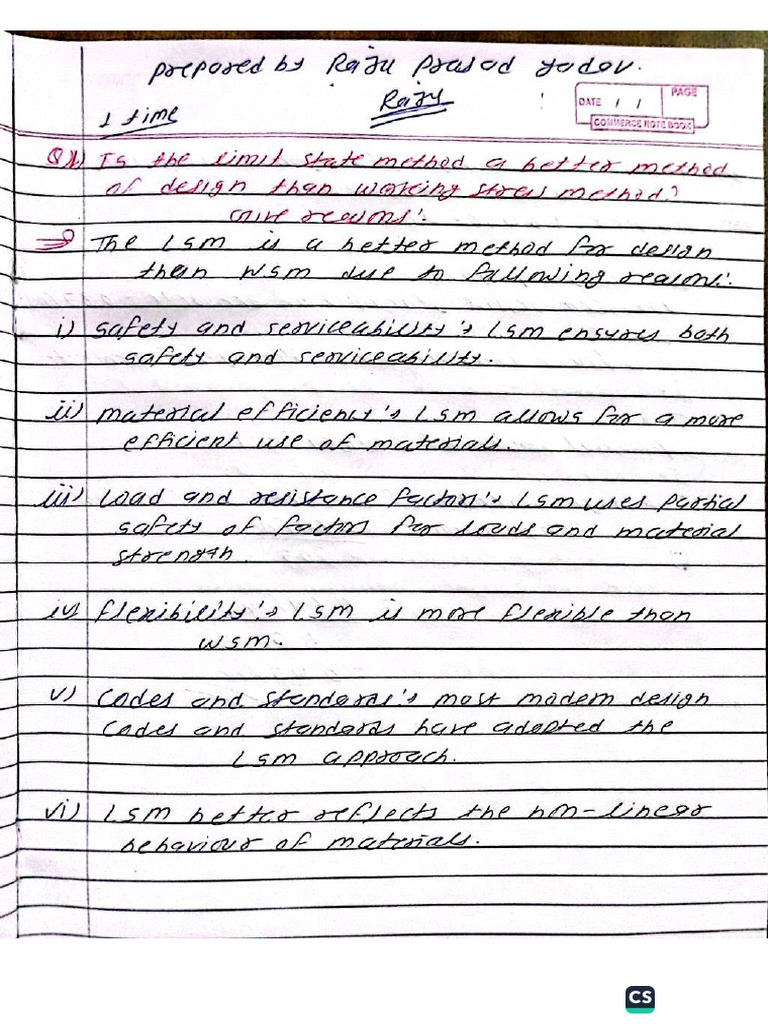 prepared by Raju prasad yadav.
Raju
1 time
DATE / /
PAGE
COMMERCE NOTE BOOK
Q1) Is the limit state method a better method
of design than working stress method?
Give reasons:
=> The LSM is a better method for design
than WSM due to following reason:
i) safety and serviceability:→ LSM ensures both
safety and serviceability.
ii) material efficiency:→ LSM allows for a more
efficient use of materials.
iii) Load and resistance factor:→ LSM uses partial
safety of factors for loads and material
strength.
iv) flexibility:→ LSM is more flexible than
WSM.
v) Codes and standards:→ most modern design
Codes and standards have adopted the
LSM approach.
vi) LSM better reflects the non-linear
behaviour of materials.
CS